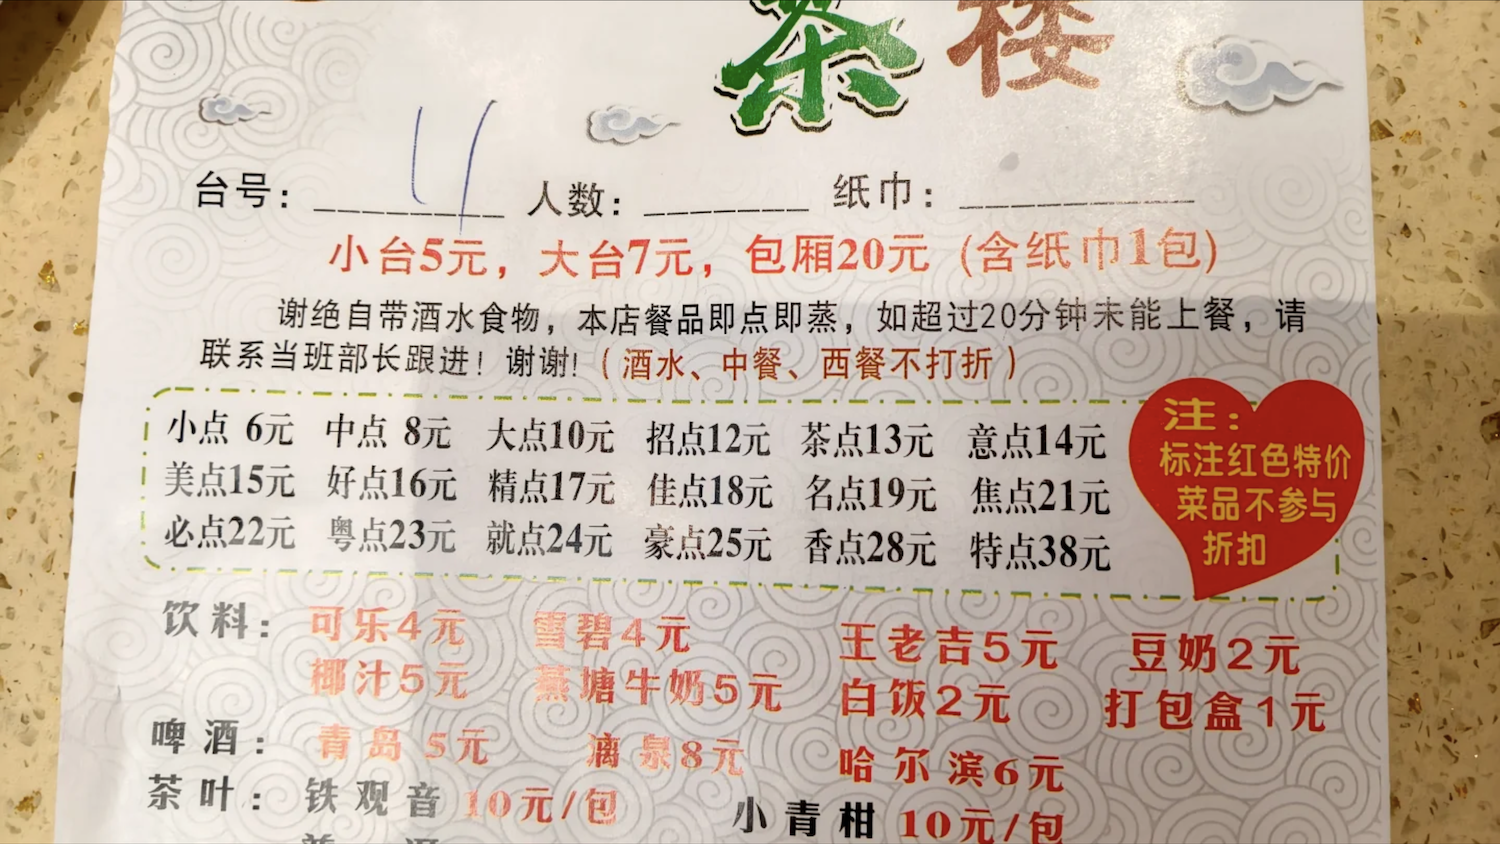 茶楼
台号：4 人数： 纸巾：
小台5元，大台7元，包厢20元（含纸巾1包）
谢绝自带酒水食物，本店餐品即点即蒸，如超过20分钟未能上餐，请
联系当班部长跟进！谢谢!（酒水、中餐、西餐不打折）
小点 6元 中点 8元 大点10元 招点12元 茶点13元 意点14元
美点15元 好点16元 精点17元 佳点18元 名点19元 焦点21元
必点22元 粤点23元 就点24元 豪点25元 香点28元 特点38元
注：
标注红色特价
菜品不参与
折扣
饮料： 可乐4元 雪碧4元 王老吉5元 豆奶2元
椰汁5元 燕塘牛奶5元 白饭2元 打包盒1元
啤酒： 青岛 5元 漓泉8元 哈尔滨6元
茶叶： 铁观音10元/包 小青柑10元/包